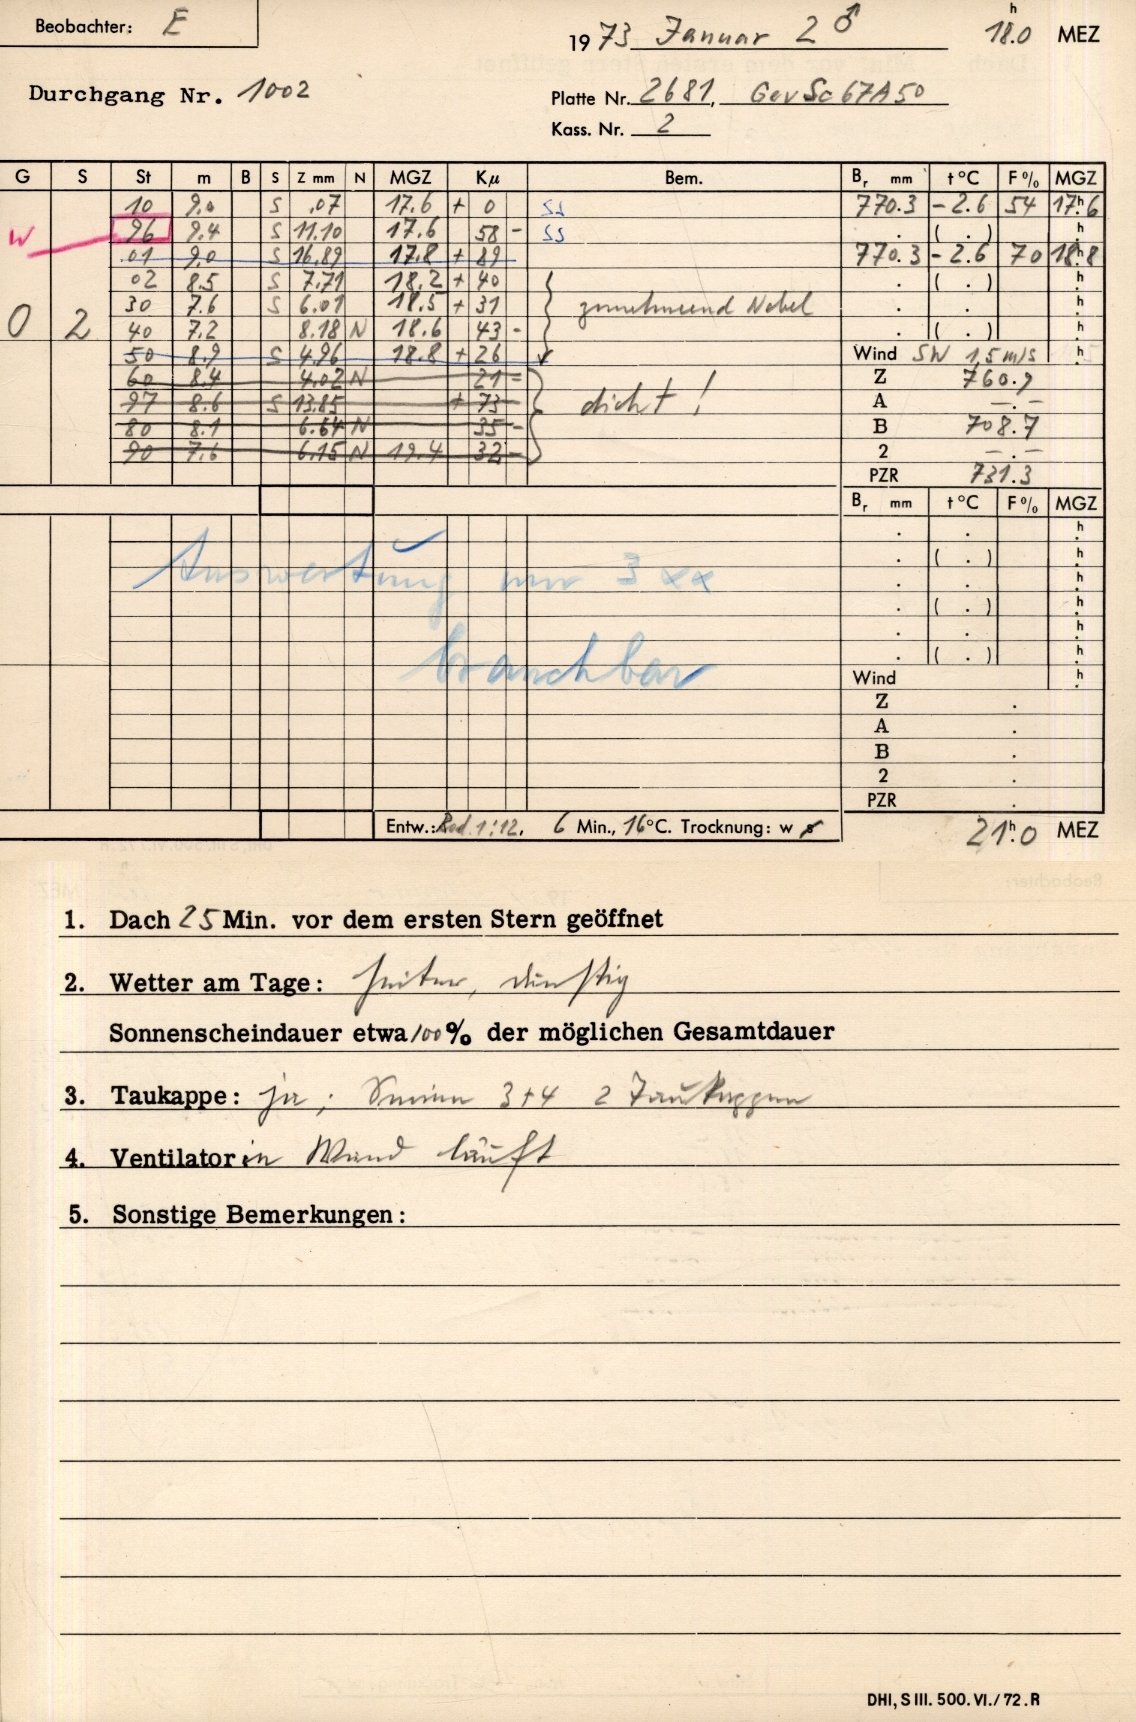 Beobachter: E
1973 Januar 2 ♂ 18.0 h MEZ
Durchgang Nr. 1002
Platte Nr. 2681, Gev Sc 67A50
Kass. Nr. 2
G S St m B S Z mm N MGZ Kμ Bem. Br mm t °C F % MGZ
10 9.0 S .07 17.6 + 0 SS 770.3 -2.6 54 17h.6
W 96 9.4 S 11.10 17.6 58 - SS . ( . ) h.
01 9.0 S 16.89 17.8 + 89 770.3 -2.6 70 18h.8
02 8.5 S 7.71 18.2 + 40 . ( . ) h.
30 7.6 S 6.01 18.5 + 31 zunehmend Nebel . . h.
0 2 40 7.2 8.18 N 18.6 43 - . ( . ) h.
50 8.9 S 4.96 18.8 + 26 Wind SW 1,5 m/s h.
60 8.4 4.02 N 21 - Z 760.9
97 8.6 S 13.85 + 73 dicht! A -.-
80 8.1 6.64 N 35 - B 708.7
90 7.6 6.15 N 19.4 32 - 2 -.-
PZR 731.3
Br mm t °C F % MGZ
. . h.
. ( . ) h.
Auswertung nur 3 xx . . h.
. ( . ) h.
. . h.
brauchbar . ( . ) h.
Wind h.
Z .
A .
B .
2 .
PZR .
Entw.: Rod. 1:12, 6 Min., 16°C. Trocknung: w s
21h.0 MEZ
1. Dach 25 Min. vor dem ersten Stern geöffnet
2. Wetter am Tage: heiter, dunstig
Sonnenscheindauer etwa 100% der möglichen Gesamtdauer
3. Taukappe: ja; 3+4 2 Taukappen
4. Ventilator in Wand läuft
5. Sonstige Bemerkungen:
DHI, S III. 500. VI./72. R